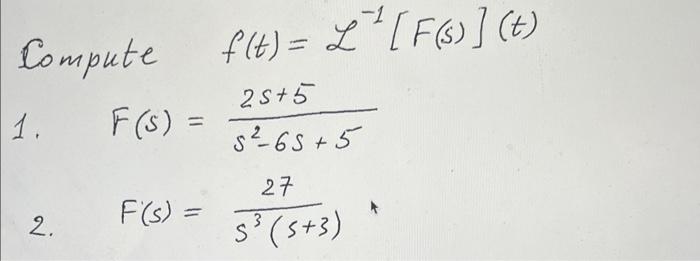 Compute f(t) = ℒ⁻¹ [F(s)] (t)
1. F(s) = (2s+5)/(s²-6s+5)
2. F(s) = 27/(s³(s+3))